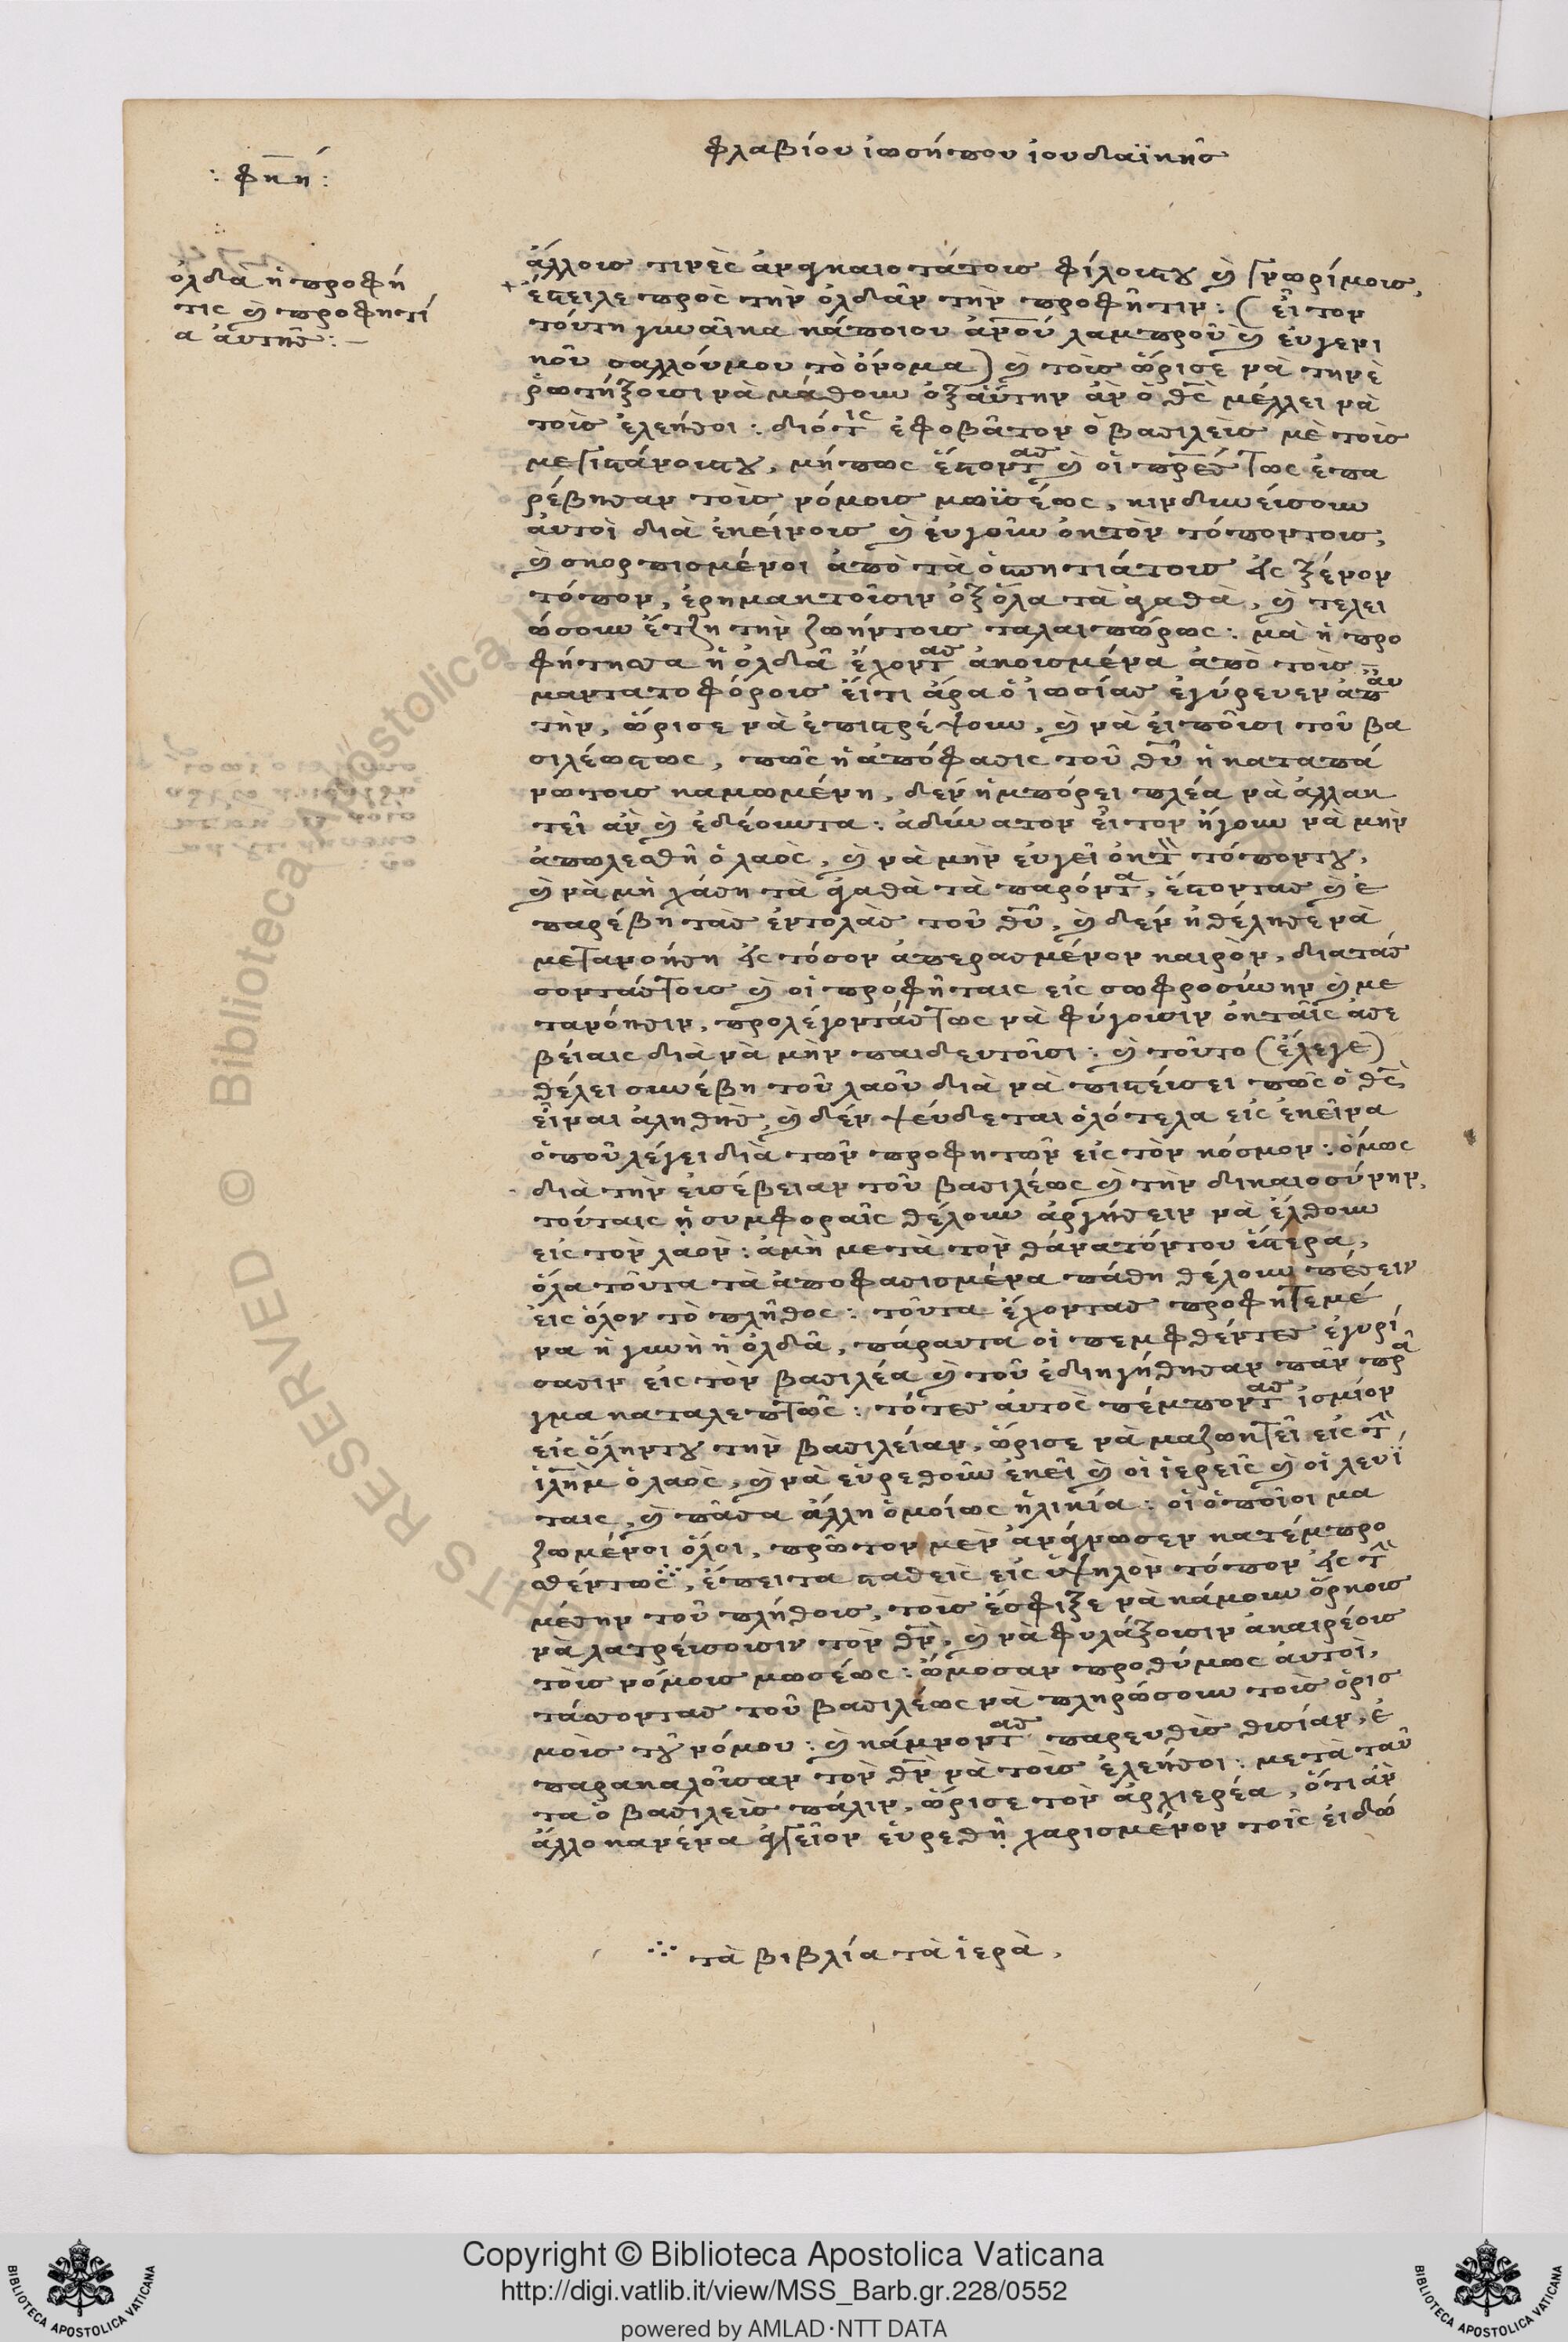 φλαβίου ἰωσήπου ἰουδαϊκῆς
: φκή :
ὀλδὰ ἡ προφή
τις καὶ προφητί
α ἀυτῆς : –
ἄλλοις τινὲς ἀναγκαιοτάτοις φίλοιστου καὶ γνωρίμοις,
+ ἔστειλε πρὸς τὴν ὀλδᾶν τὴν προφῆτιν : ( εἶ τον
τούτη γυναῖκα κάποιου ἀνου λαμπροῦ καὶ ἐυγενι
κοῦ σαλλούμου τὸ ὄνομα) καὶ τοὶς ὥρισε νὰ τηνὲ
ῥωτήξοισι νὰ μάθουν ὀξαύτην ἀν ὁ θς μέλλει νὰ
τοὶς ἐλεήσοι : διότις ἐφοβᾶτον ὁ βασιλεὶς μὲ τοὶς
μεγιστάνοιστου, μήπως ἔστοντας καὶ οἱ πρες τως ἐπα
ρέβησαν τοὶς νόμοις μωϊσέως, κινδυνείσουν
ἀυτοὶ διὰ ἐκείνοις καὶ ἐυγοῦν ὀκτὸν τόποντοις,
καὶ σκορπισμένοι ἀπὸ τὰ ὁσπητιάτοις εἰς ξένον
τόπον, ἐρημακτοῦσιν ὀξ ὅλα τὰ ἀγαθὰ, καὶ τελει
ώσουν ἔτζη τὴν ζωήντοις ταλαιπώρως : μὰ ἡ προ
φήτησσα ἡ ὀλδᾶ ἔχοντας ἀκοισμένα ἀπὸ τοὶς
μαντατοφόροις εἴτι ἄρα ὁ ἰωσίας ἐγύρευεν ἀπ αυ
τὴν, ὥρισε νὰ ἐπιστρέψουν, καὶ νὰ εἰποῦσι τοῦ βα
σιλέωστως, πῶς ἡ ἀπόφασις τοῦ θῦ ἡ καταπά
νωτοις καμωμένη, δεν ἡμπόρει πλέα νὰ ἀλλακ
τεῖ ἀν καὶ ἐδέουντα : ἀδύνατον εἶ τον ἤγουν νὰ μὴν
ἀπωλεσθῆ ὁ λαὸς, καὶ νὰ μὴν ἐυγεῖ ὀκτὸν τόποντου,
καὶ νὰ μὴ χάση τὰ ἀγαθὰ τὰ παρόντα, ἔστοντας καὶ ἐ
παρέβη τὰς ἐντολὰς τοῦ θῦ, καὶ δεν ἠθέλησε νὰ
μετανοήση εἰς τόσον ἀπερασμένον καιρὸν, διατάσ
σοντάςτοις καὶ οἱ προφῆταις εἰς σωφροσύνην καὶ με
τανόησιν, προλέγοντάςτως νὰ φύγοισιν ὀκταῖς ἀσε
βείαις διὰ νὰ μὴν παιδευτοῦσι : καὶ τοῦτο (ἔλεγε)
θέλει συνέβη τοῦ λαοῦ διὰ νὰ πιστέισει πῶς ὁ θς
εἶναι ἀληθὴς, καὶ δέν ψεύδεται ὁλότελα εἰς ἐκεῖνα
ὁποῦ λέγει διὰ τῶν προφητῶν εἰς τὸν κόσμον : ὅμως
διὰ τὴν ἐισέβειαν τοῦ βασιλέως καὶ τὴν δικαιοσύνην,
τούταις ἡ συμφοραῖς θέλουν ἀργήσειν νὰ ἔλθουν
εἰς τὸν λαὸν : ἀμὴ μετὰ τὸν θάνατόντου ὕστερα,
ὅλα τοῦτα τὰ ἀποφασισμένα πάθη θέλουν πέσειν
εἰς ὅλον τὸ πλῆθος : τοῦτα ἔχοντας προφητεμέ
να ἡ γυνὴ ἡ ὀλδᾶ, πάραυτα οἱ πεμφθέντες ἐγυρί
σασιν εἰς τὸν βασιλέα καὶ τοῦ ἐδιηγήθησαν πᾶν πρᾶ
γμα καταλεπτῶς : τότες ἀυτὸς πέμποντας ἰσμίον
εἰς ὅληντου τὴν βασιλείαν, ὥρισε νὰ μαζωκτεῖ εἰς τὴν
ἱλημ ὁ λαὸς, καὶ νὰ εὑρεθοῦν ἐκεῖ καὶ οἱ ἱερεῖς καὶ οἱ λευΐ
ταις, καὶ πᾶσα ἄλλη ὁμοίως ἡλικία : οἱ ὁποῖοι μα
ζωμένοι ὅλοι, πρῶτον μὲν ἀνάγνωσεν κατέμπρο
σθέντως ∴, ἔπειτα σταθεὶς εἰς ὑψηλὸν τόπον εἰς τὴν
μέσην τοῦ πλήθοις, τοὶς ἔσφιξε νὰ κάμουν ὅρκοις
νὰ λατρείσοισιν τὸν θν, καὶ νὰ φυλάξοισιν ἀκαιρέοις
τοὶς νόμοις μωσέως : ὤμοσαν προθύμως ἀυτοὶ,
τάσσοντας τοῦ βασιλέως νὰ πληρώσουν τοὶς ὁρισ
μοὶς τοῦ νόμου : καὶ κάμνοντας παρευθὶς θισίαν, ἐ
παρακαλοῦσαν τὸν θν νὰ τοὶς ἐλεήσοι : μετὰ ταῦ
τα ὁ βασιλεὶς πάλιν, ὥρισε τὸν ἀρχιερέα, ὅτι ἀν
ἄλλο κανένα ἀγγεῖον ἑυρεθῆ χαρισμένον τοῖς εἰδώ
∴ τὰ βιβλία τὰ ἱερὰ,
Biblioteca Apostolica Vaticana
RIGHTS RESERVED ©
Copyright © Biblioteca Apostolica Vaticana
http://digi.vatlib.it/view/MSS_Barb.gr.228/0552
powered by AMLAD·NTT DATA
BIBLIOTECA APOSTOLICA VATICANA
BIBLIOTECA APOSTOLICA VATICANA